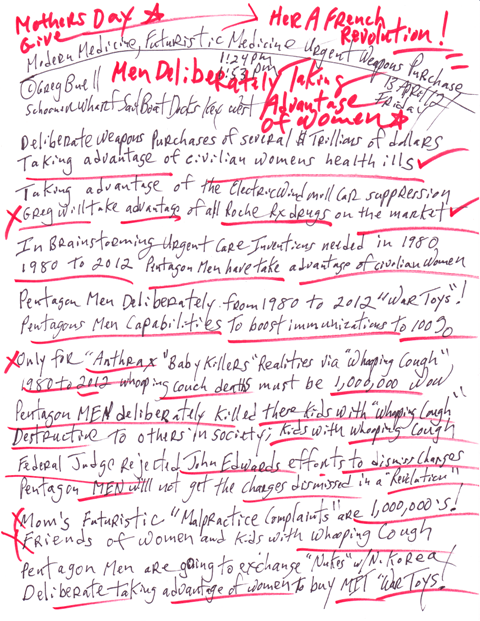 Mothers Day
Give
Her A French
Revolution!
Modern Medicine, Futuristic Medicine Urgent Weapons Purchase
1:24 pm
1:53 pm
©Greg Buell
Men Deliberately Taking
Advantage
of Women
13 April 12
Friday
Schooner Wharf Sail Boat Docks Key West
Deliberate Weapons Purchases of several $Trillions of dollars
Taking advantage of civilian womens health ills
Taking advantage of the Electricwindmill Car suppression
Greg will take advantage of all Roche Rx drugs on the market
In Brainstorming Urgent Care Inventions needed in 1980
1980 to 2012 Pentagon Men have take advantage of civilian women
Pentagon Men Deliberately from 1980 to 2012 "War Toys"!
Pentagons Men Capabilities to boost immunizations to 100%
Only for "Anthrax" "Baby Killers" Realities via "Whooping Cough"
1980 to 2012 whooping couch deaths must be 1,000,000 wow
Pentagon MEN deliberately killed these kids with "Whooping Cough"
Destructive to others in society; kids with whooping Cough
Federal Judge rejected John Edwards efforts to dismiss charges
Pentagon MEN will not get the charges dismissed in a "Revelation"
Mom's Futuristic "Malpractice Complaints" are 1,000,000's!
Friends of women and kids with whooping Cough
Pentagon Men are going to exchange "Nukes" w/ N. Korea
Deliberate taking advantage of women to buy MIT "War Toys!